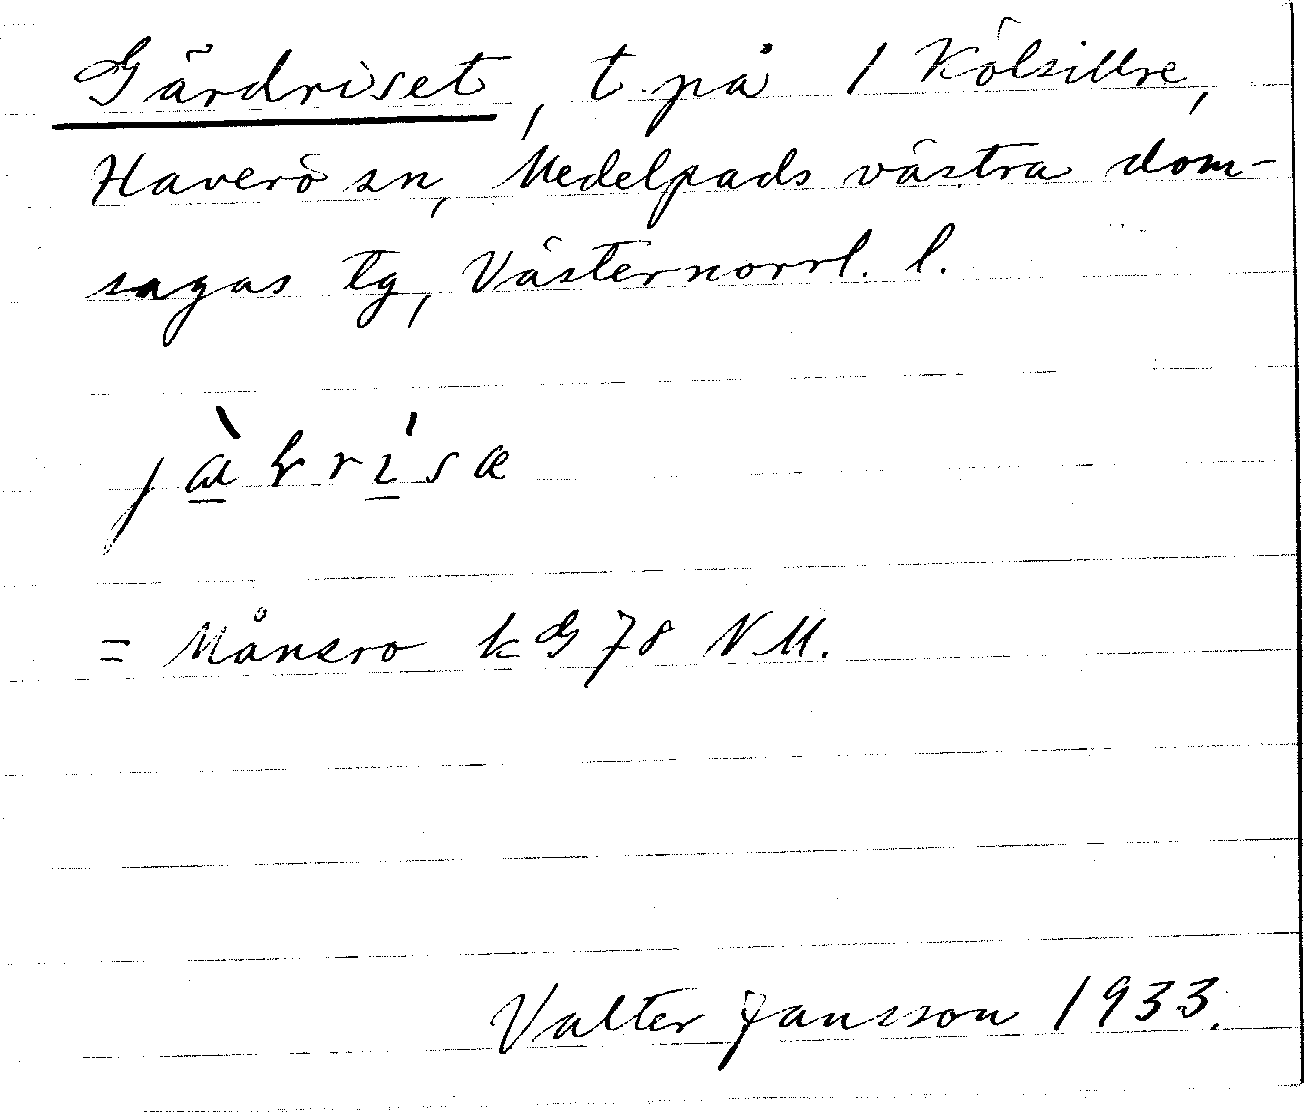 Gärdriset, t. på 1 Kölsillre,
Haverö sn, Medelpads västra dom-
sagas tg, Västernorrl. l.
= Månsro kG 78 NM.
Valter Jansson 1933.